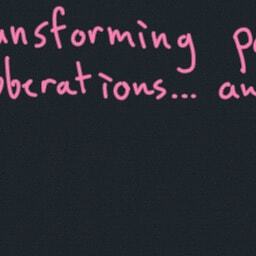 ansforming po
bberations... an